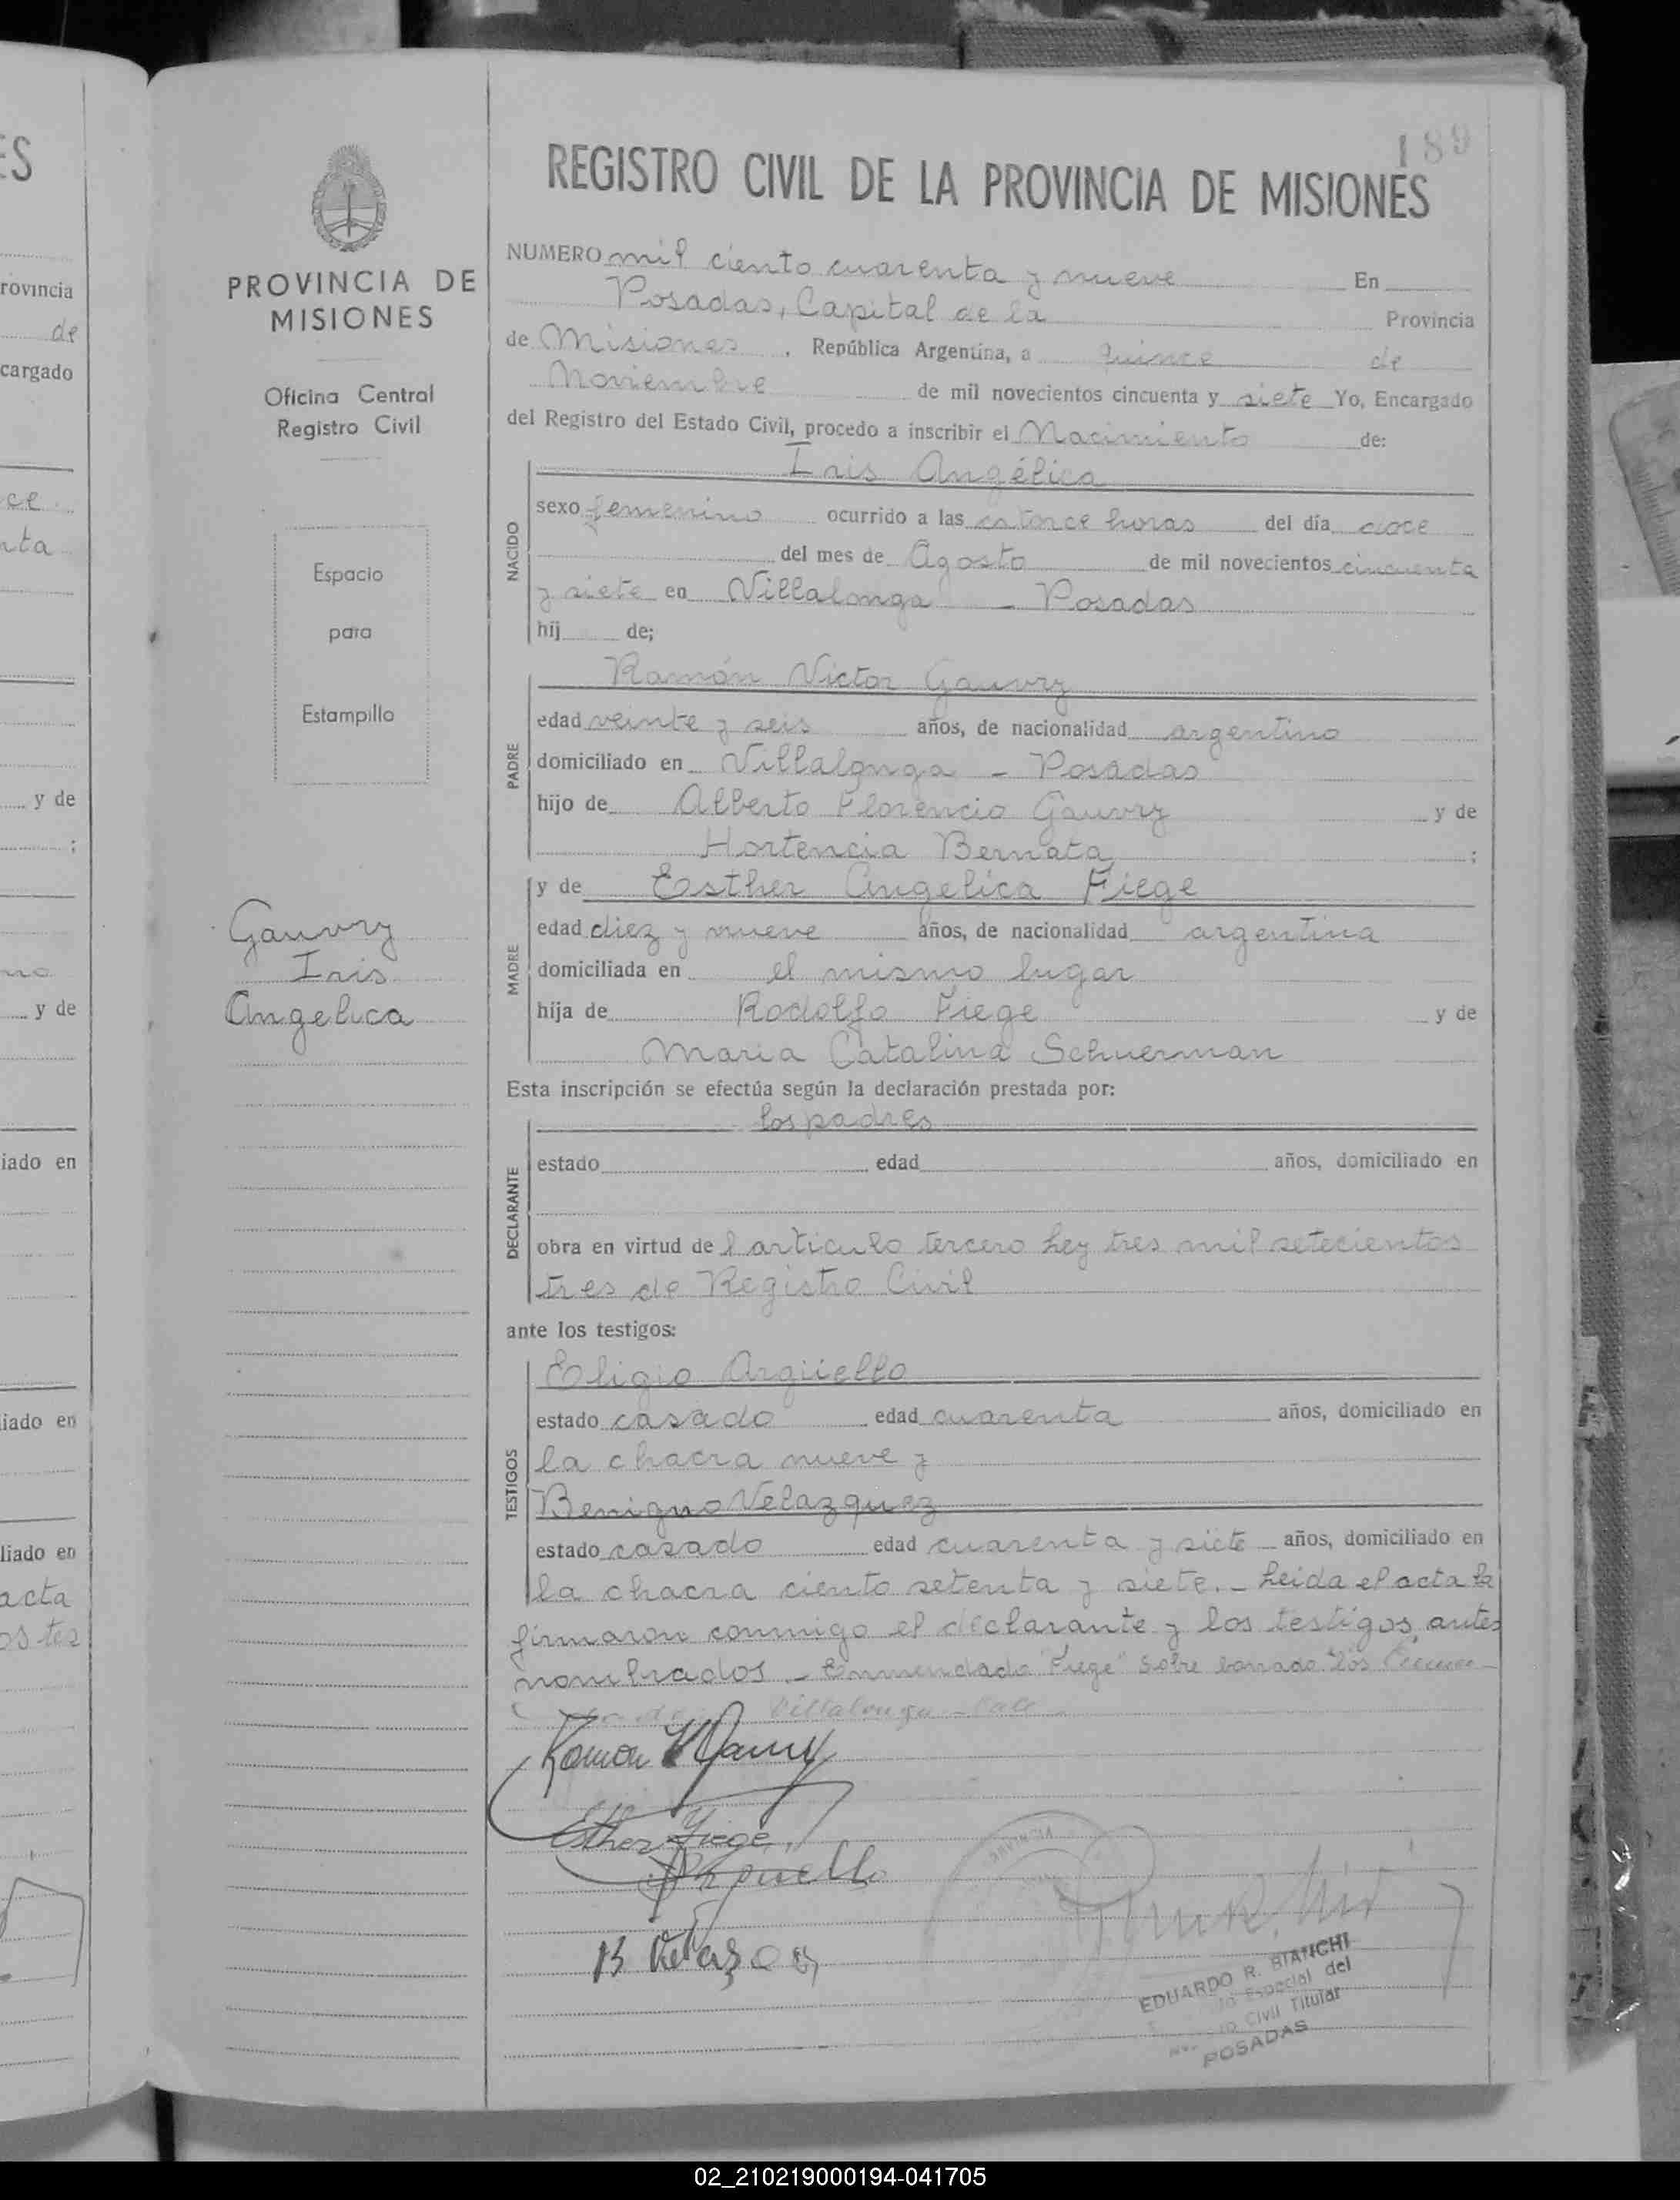 ES
rovincia
de
cargado
ce
nta
y de
;
no
y de
iado en
iado en
liado en
acta
os tes
PROVINCIA DE
MISIONES
Oficina Central
Registro Civil
Espacio
para
Estampilla
Gauvry
Iris
Angelica
189
REGISTRO CIVIL DE LA PROVINCIA DE MISIONES
NUMERO mil ciento cuarenta y nueve En
Posadas, Capital de la Provincia
de Misiones, República Argentina, a quince de
Noviembre de mil novecientos cincuenta y siete Yo, Encargado
del Registro del Estado Civil, procedo a inscribir el Nacimiento de:
NACIDO
Iris Angélica
sexo femenino ocurrido a las catorce horas del día doce
del mes de Agosto de mil novecientos cincuenta
y siete en Villalonga - Posadas
hij de;
PADRE
Ramón Victor Gauvry
edad veinte y seis años, de nacionalidad argentino
domiciliado en Villalonga - Posadas
hijo de Alberto Florencio Gauvry y de
Hortencia Bernata ;
MADRE
y de Esther Angelica Fiege
edad diez y nueve años, de nacionalidad argentina
domiciliada en el mismo lugar
hija de Rodolfo Fiege y de
Maria Catalina Schuerman
Esta inscripción se efectúa según la declaración prestada por:
DECLARANTE
los padres
estado edad años, domiciliado en
obra en virtud del articulo tercero Ley tres mil setecientos
tres de Registro Civil
ante los testigos:
TESTIGOS
Eligio Argüello
estado casado edad cuarenta años, domiciliado en
la chacra nueve y
Benigno Velazquez
estado casado edad cuarenta y siete años, domiciliado en
la chacra ciento setenta y siete. - Leida el acta la
firmaron conmigo el declarante y los testigos antes
nombrados. - Enmendado "Fiege" Sobre borrado "los
Villalonga - Vale
Ramon V Gauvry
Esther Fiege
Arguello
B Velazq
PROVINCIA
EDUARDO R. BIANCHI
Especial del
Civil Titular
POSADAS
02_210219000194-041705